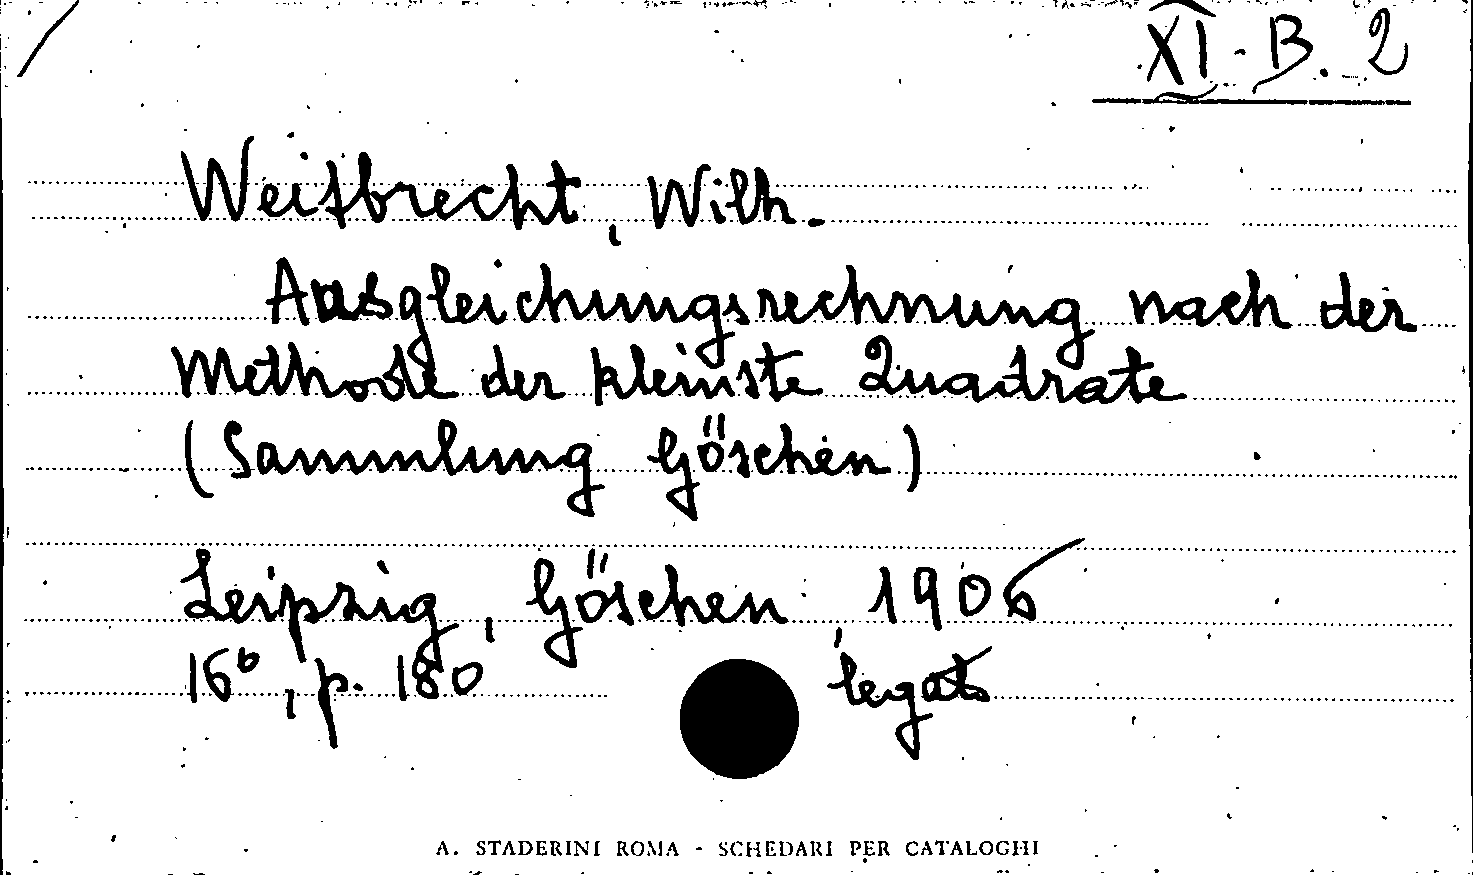 XI - B. 2
Weitbrecht, Wilh.
Ausgleichungsrechnung nach der
Methode der kleinste Quadrate
(Sammlung Göschen)
Leipzig, Göschen, 1906
16°, p. 180 legato
A. STADERINI ROMA - SCHEDARI PER CATALOGHI